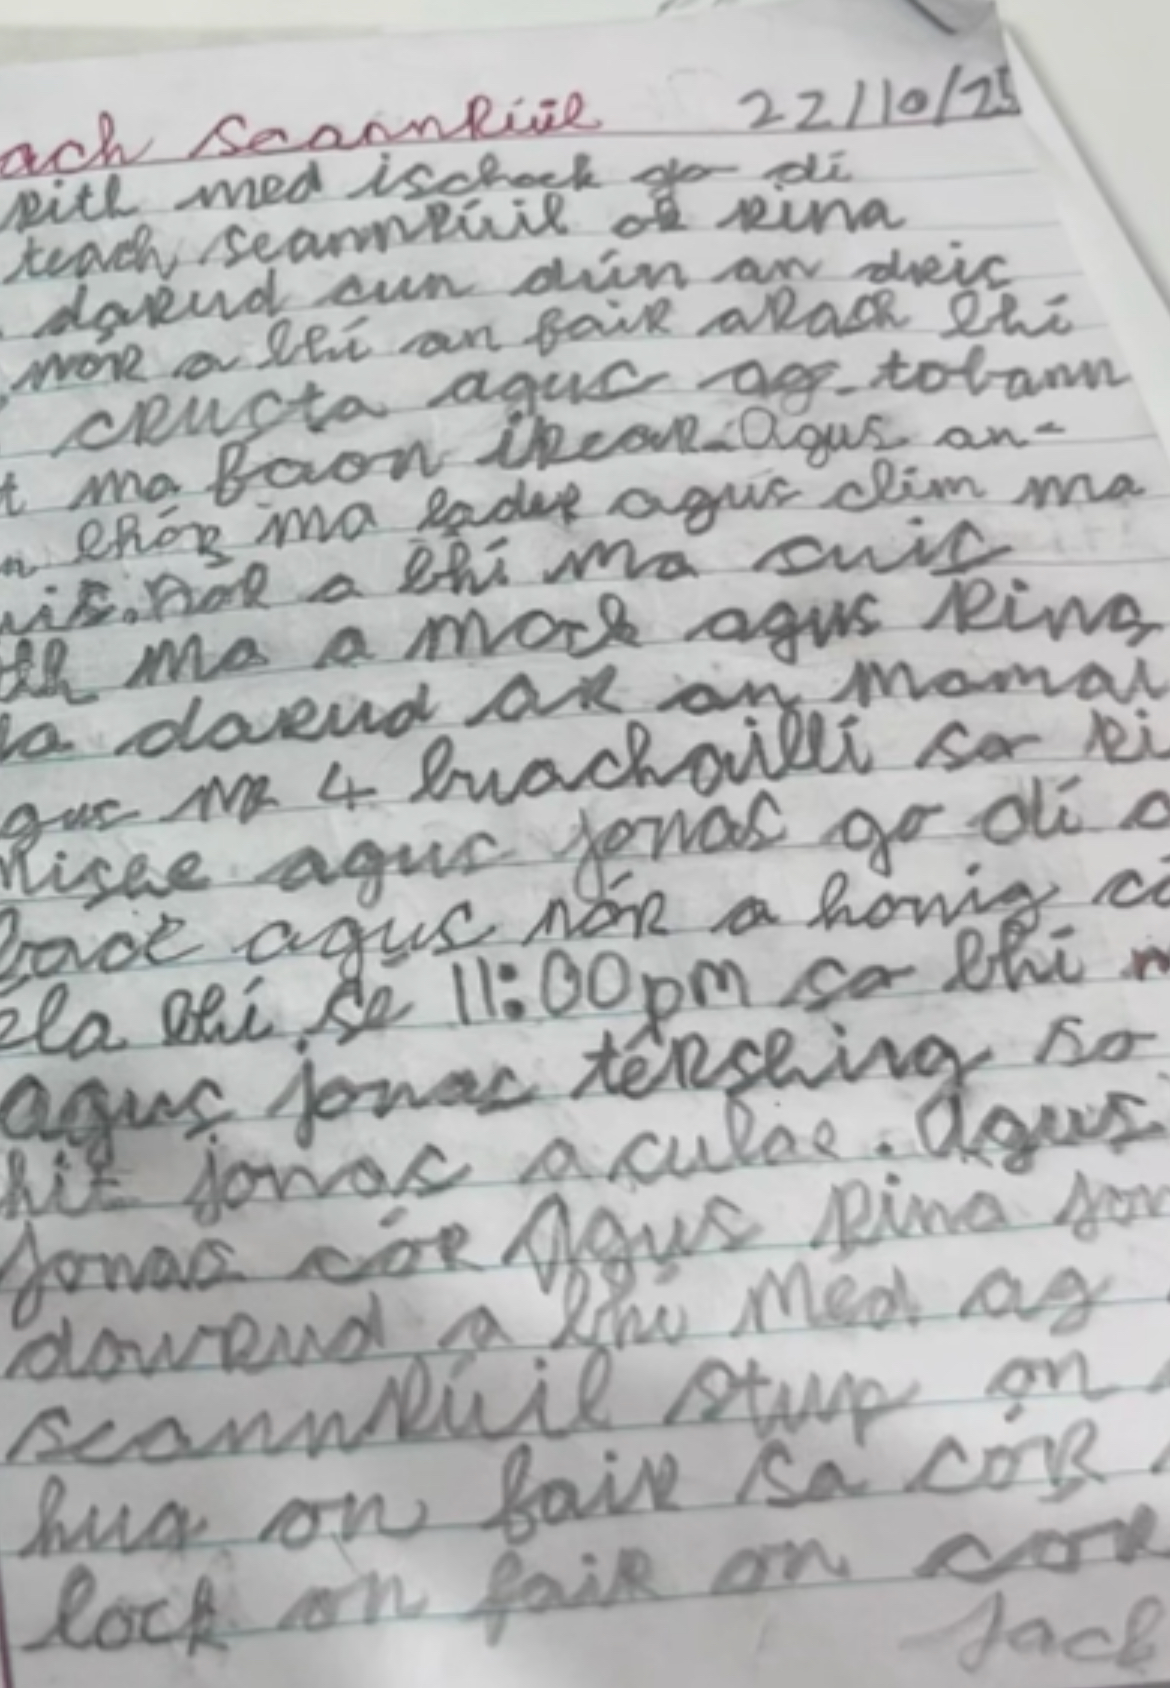 ach scannrúúl 22/10/25
rith med ischeck go dí
teach scannrúil ok rina
darud cun dún an deis
nór a bhí an fair arach bhí
cructa agus ag tobann
t ma faon irear. Agus an-
n bhóg ma eadee agus clim ma
uis. nór a bhí ma suis
th ma a mock agus rina
la darud ar an mamai
gus na 4 buachaillí sa ri
misee agus jonas go dí a
bact agus nór a honig có
éla bhí sé 11:00pm so bhí m
agus jonas térshing so
hit jonas aculae. Agus
jonas cór Agus rina jon
dowrud a bhí med ag
scannrúil stup an
hug an fair sa cór
lock an fair an cor
Jack